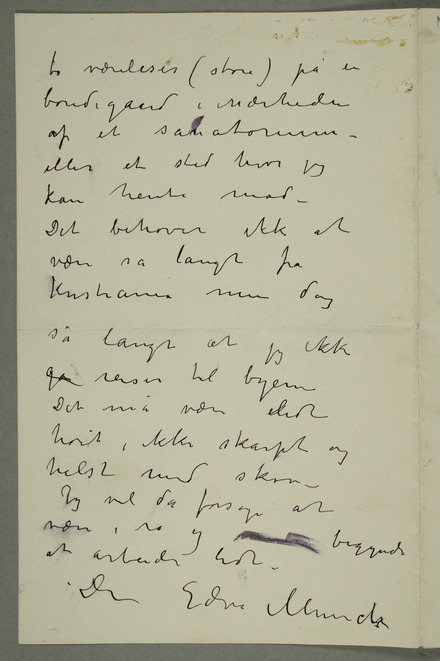 to værelser (store) på en
bondegaard i nærheden
af et sanatorium –
eller et sted hvor jeg
kan hente mad –
Det behøver ikk at
være så langt fra
Kristiania men dog
så langt at jeg ikk
reiser til byen
Det må være lidt
høit, ikke skarpt og
helst med skov –
Jeg vil da forsøge at
være i ro og begynde
at arbeide lidt –
Din Edva Munch